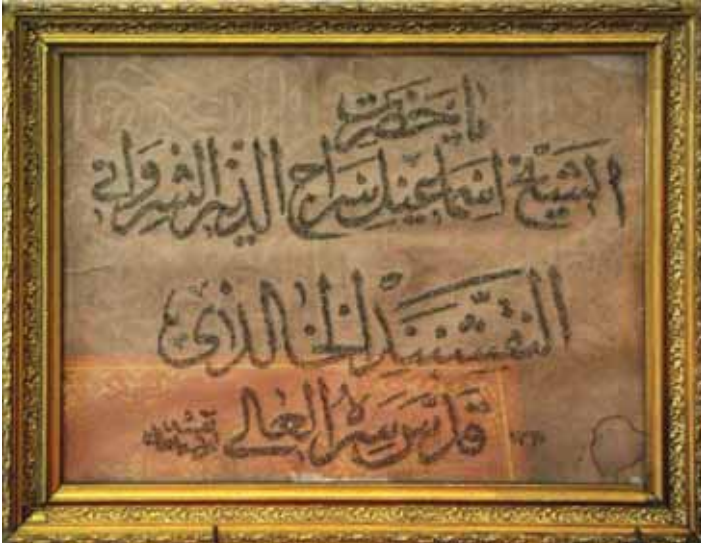 يا حضرت
الشيخ اسماعيل سراج الدين الشرواني
النقشبندي الخالدي
قدس سره العالي